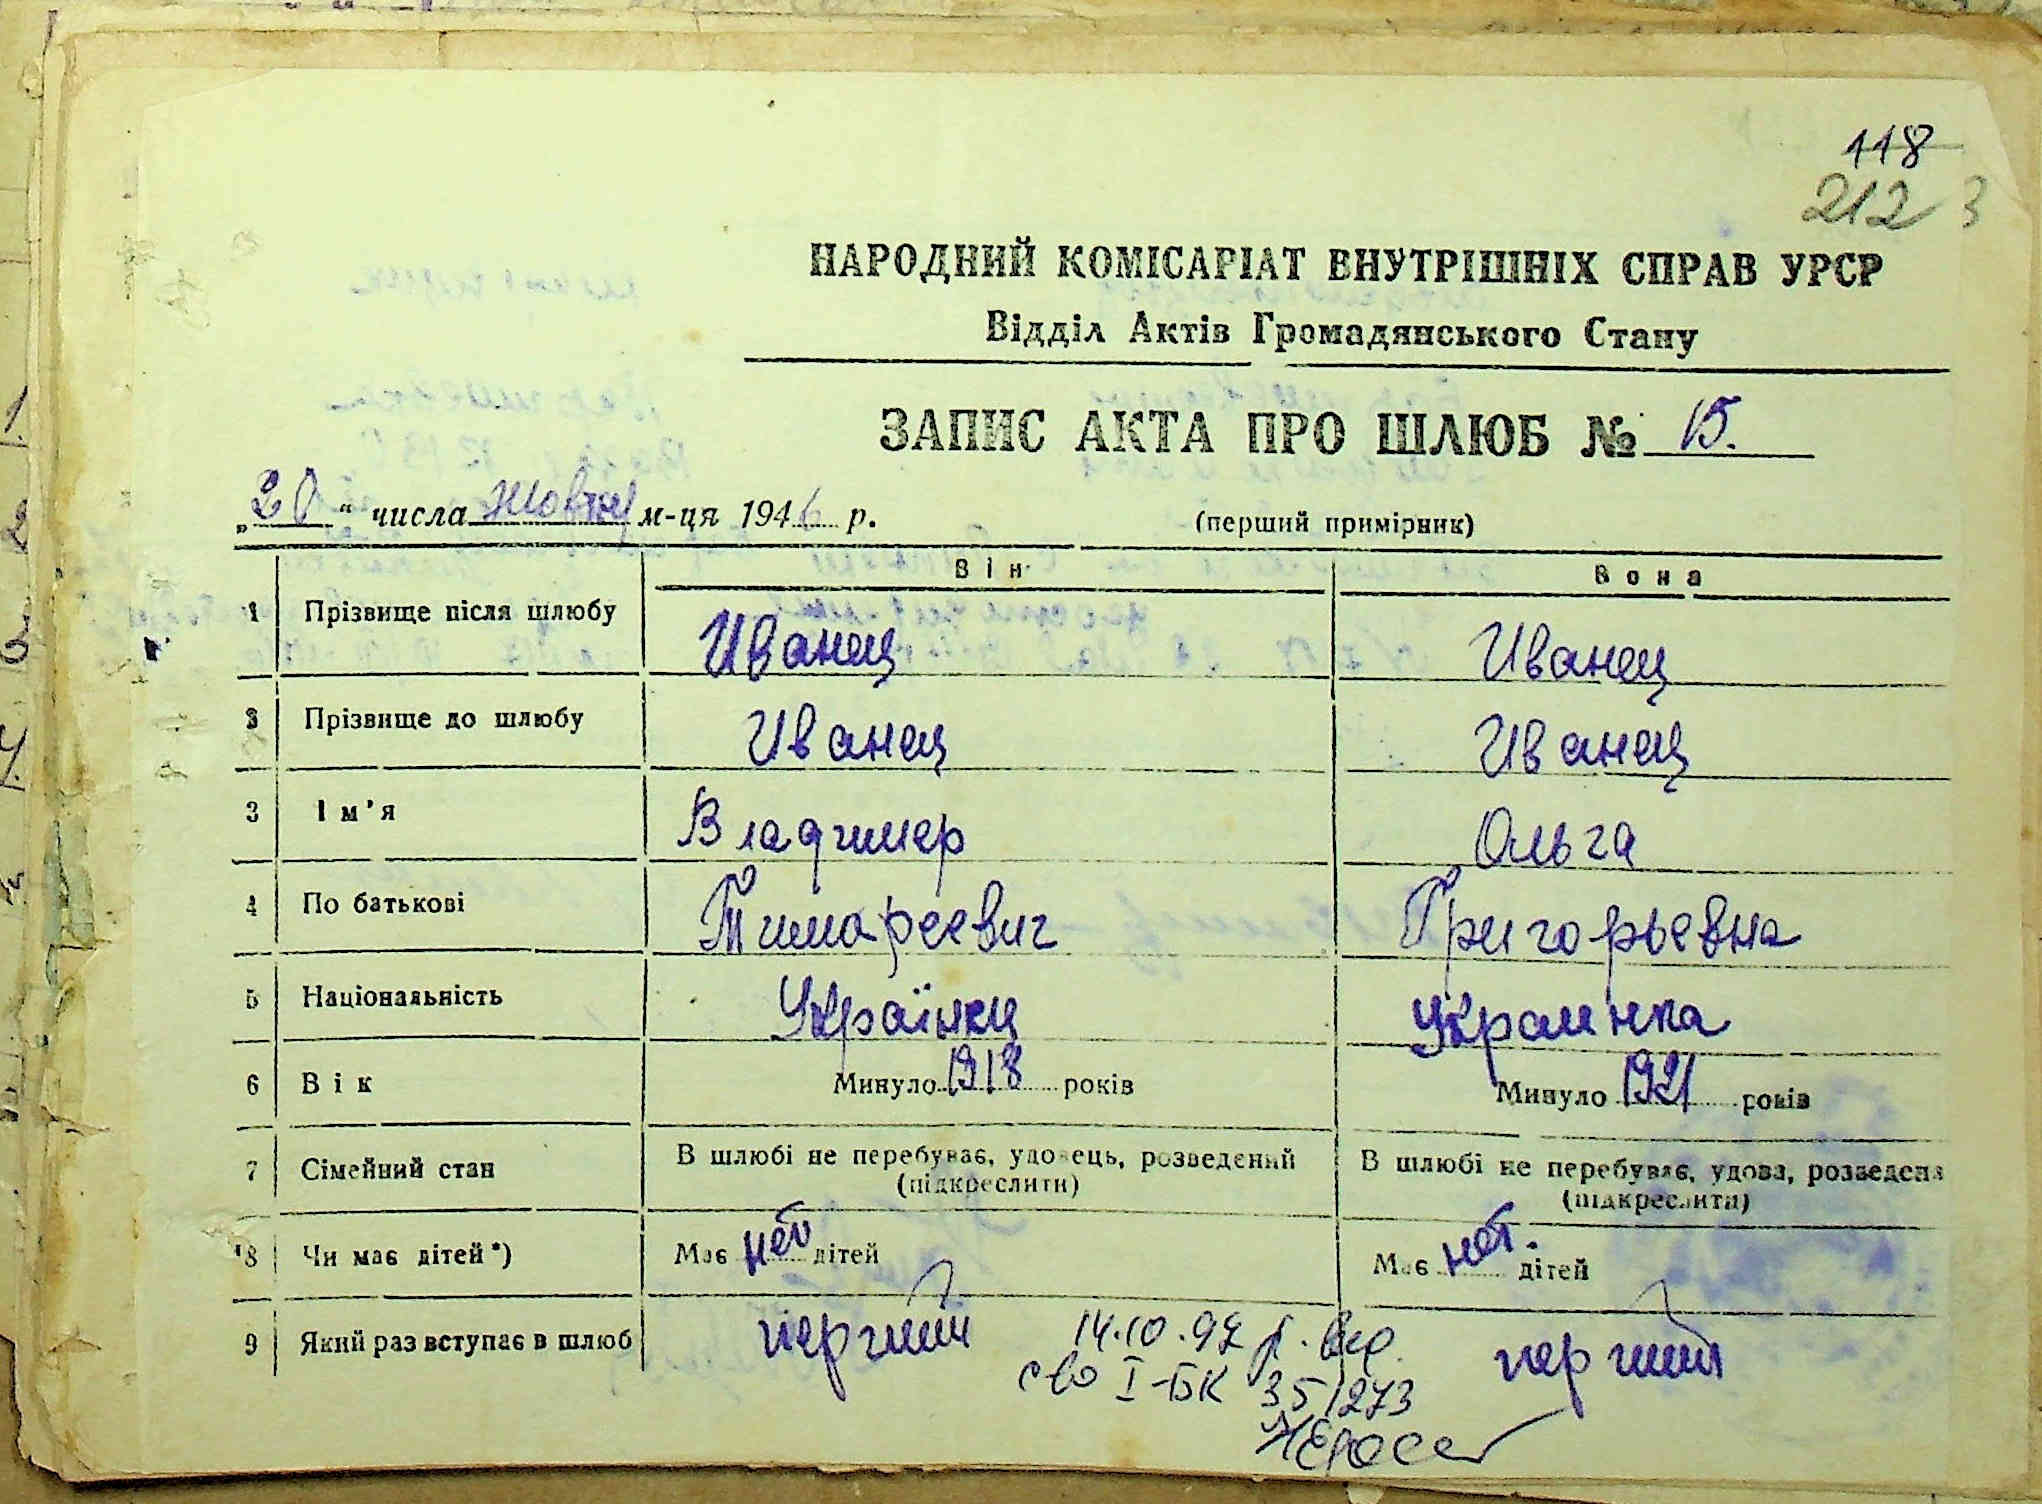 118
212 3
НАРОДНИЙ КОМІСАРІАТ ВНУТРІШНІХ СПРАВ УРСР
Відділ Актів Громадянського Стану
ЗАПИС АКТА ПРО ШЛЮБ № 15.
„20“ числа жовтня м-ця 1946 р. (перший примірник)
Він Вона
1 Прізвище після шлюбу Иванец Иванец
2 Прізвище до шлюбу Иванец Иванец
3 Ім'я Владимер Ольга
4 По батькові Тимофеевич Григорьевна
5 Національність Українец Украинка
6 Вік Минуло 1918 років Минуло 1921 років
7 Сімейний стан В шлюбі не перебуває, удовець, розведений (підкреслити) В шлюбі не перебуває, удова, розведена (підкреслити)
8 Чи має дітей*) Має нет дітей Має нет. дітей
9 Який раз вступає в шлюб перший перший
14.10.97 р. вид.
с-во І-БК 351273